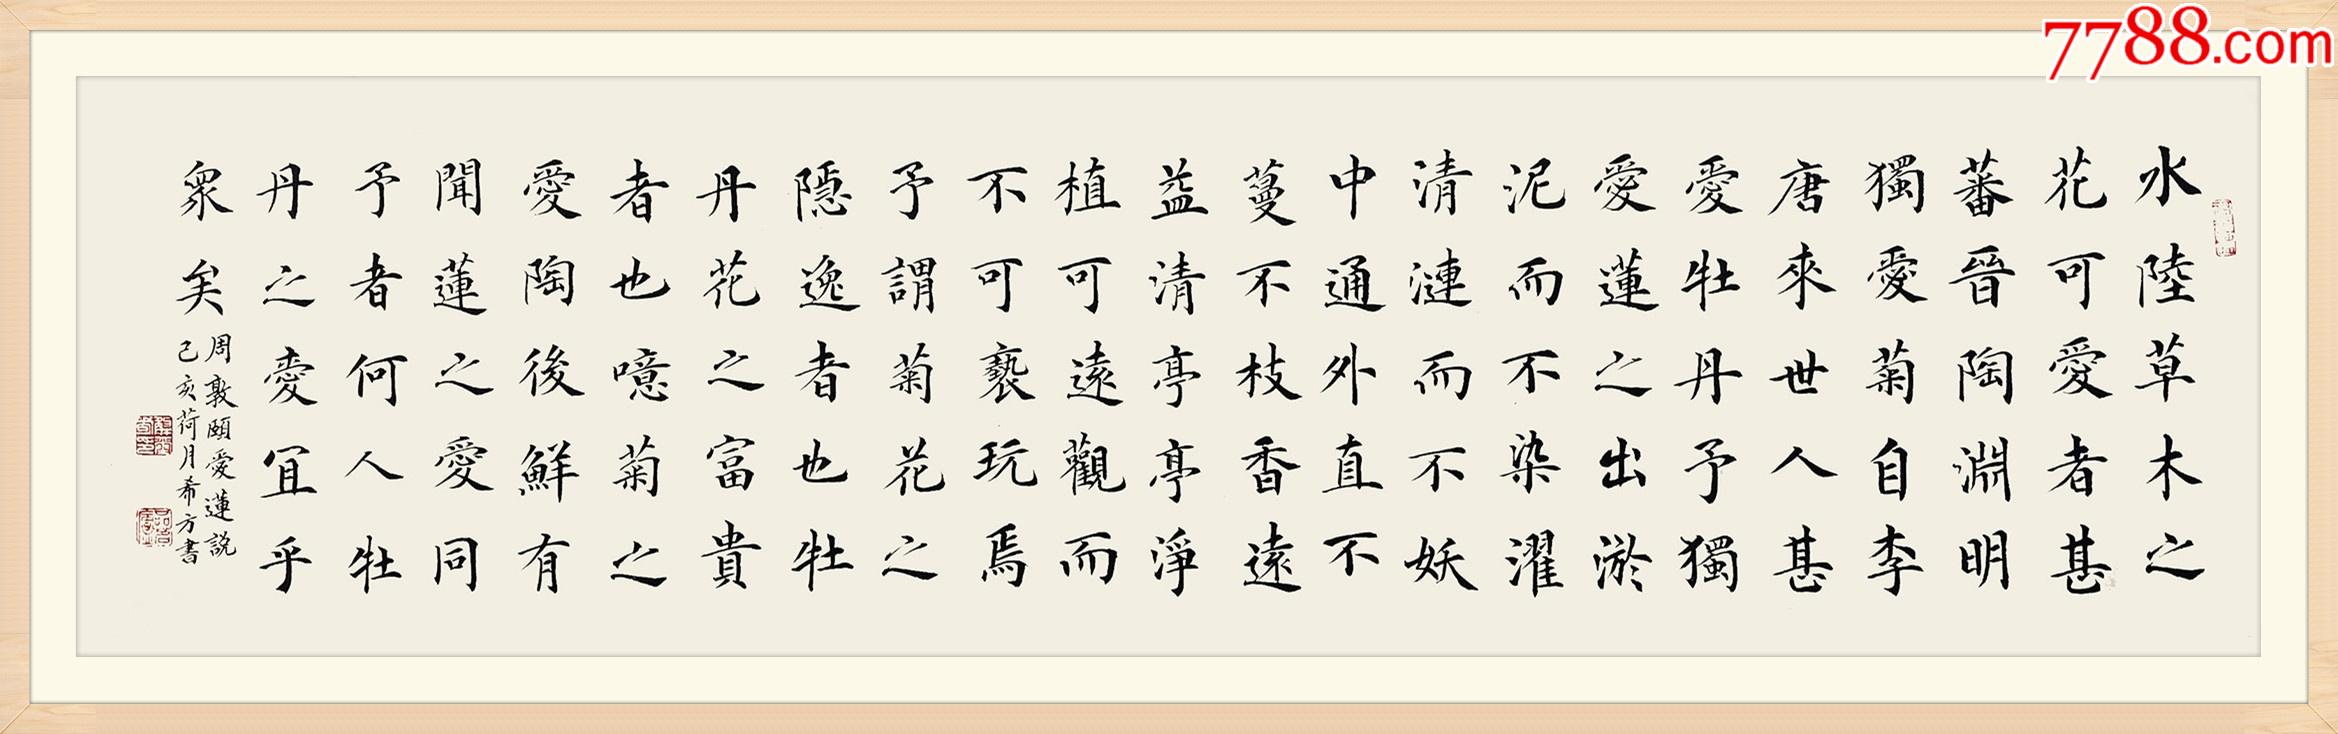 水陸草木之
花可愛者甚
蕃晉陶淵明
獨愛菊自李
唐來世人甚
愛牡丹予獨
愛蓮之出淤
泥而不染濯
清漣而不妖
中通外直不
蔓不枝香遠
益清亭亭淨
植可遠觀而
不可褻玩焉
予謂菊花之
隱逸者也牡
丹花之富貴
者也噫菊之
愛陶後鮮有
聞蓮之愛同
予者何人牡
丹之愛宜乎
衆矣
周敦頤愛蓮説
己亥荷月希方書
7788.com